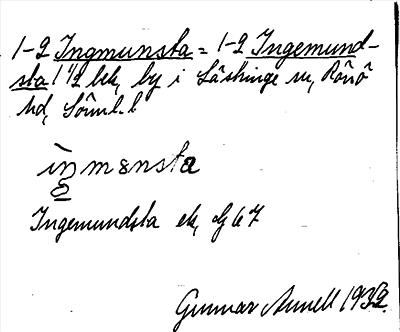 1-2 Ingmunsta = 1-2 Ingemund-
sta 1 1/2 bk, by i Läshinge sn, Rönö
hd, Söml. l
inmɵnsta
Ingemundsta ek, G 67
Gunnar Annell 1932.